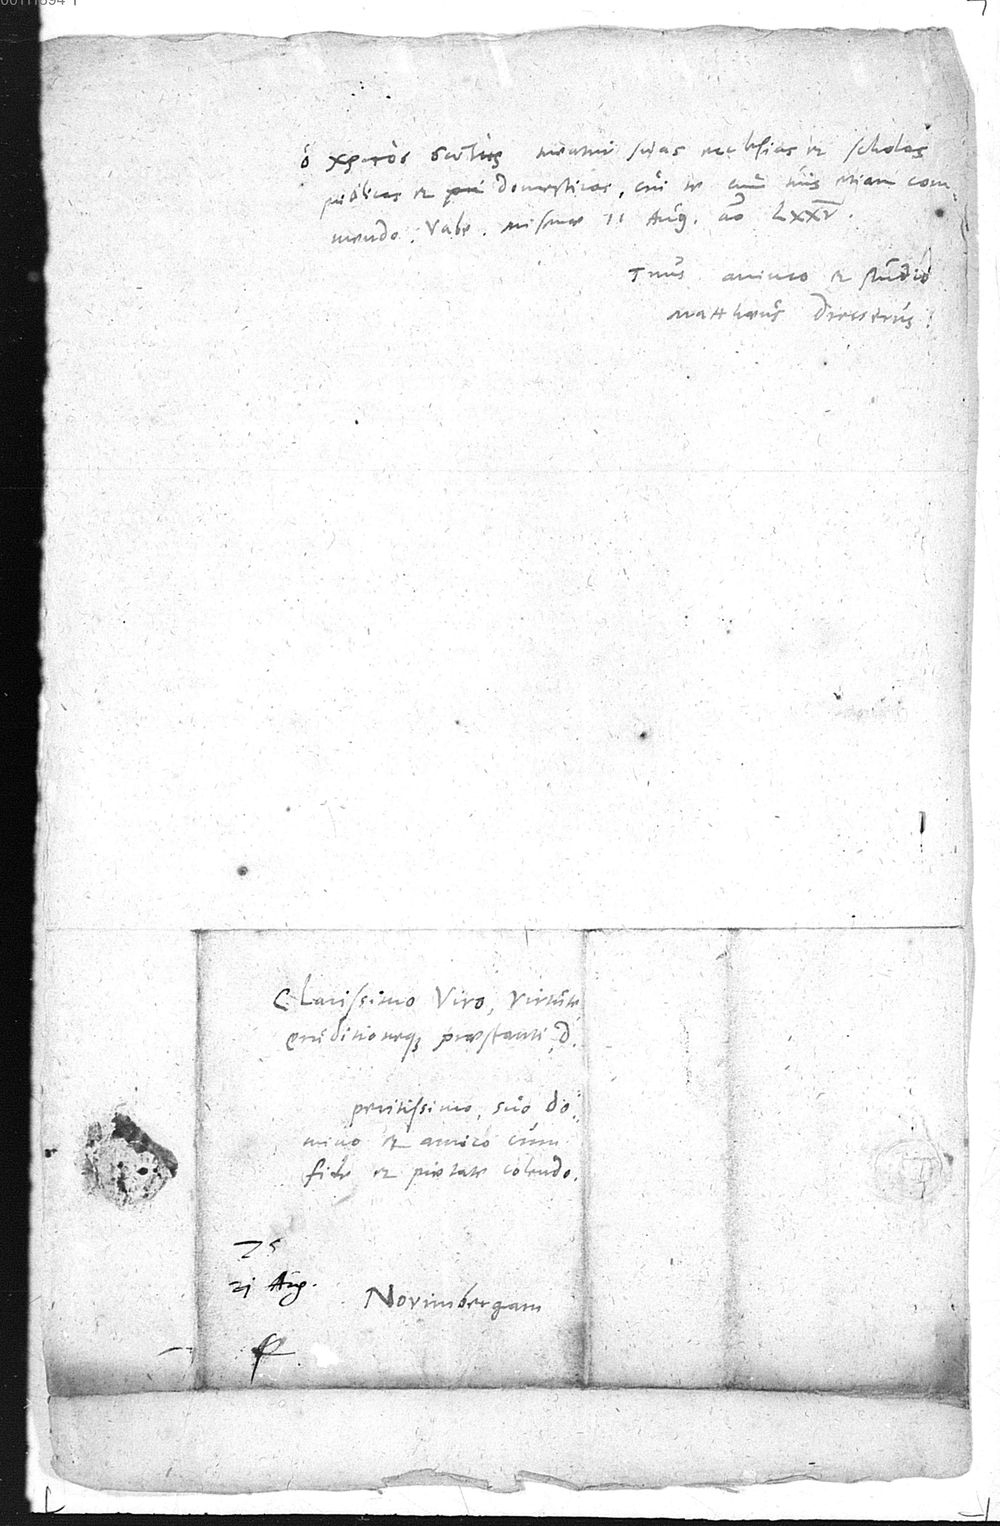 ὁ χρισὸς σωτὴρ meatur suas ecclesias et scholas
publicas et domesticas, cui te cum tuis etiam com-
mendo. Vale. Misnae 11 Aug. ao LXXV.
Tuus animo et studio
Matthaeus Dresserus.
Clarissimo Viro, virtute
eruditioneq; praestanti, d.
peritissimo, suo do:
mino et amico cum
fide et pietate colendo.
75
21 Aug.
Norimbergam